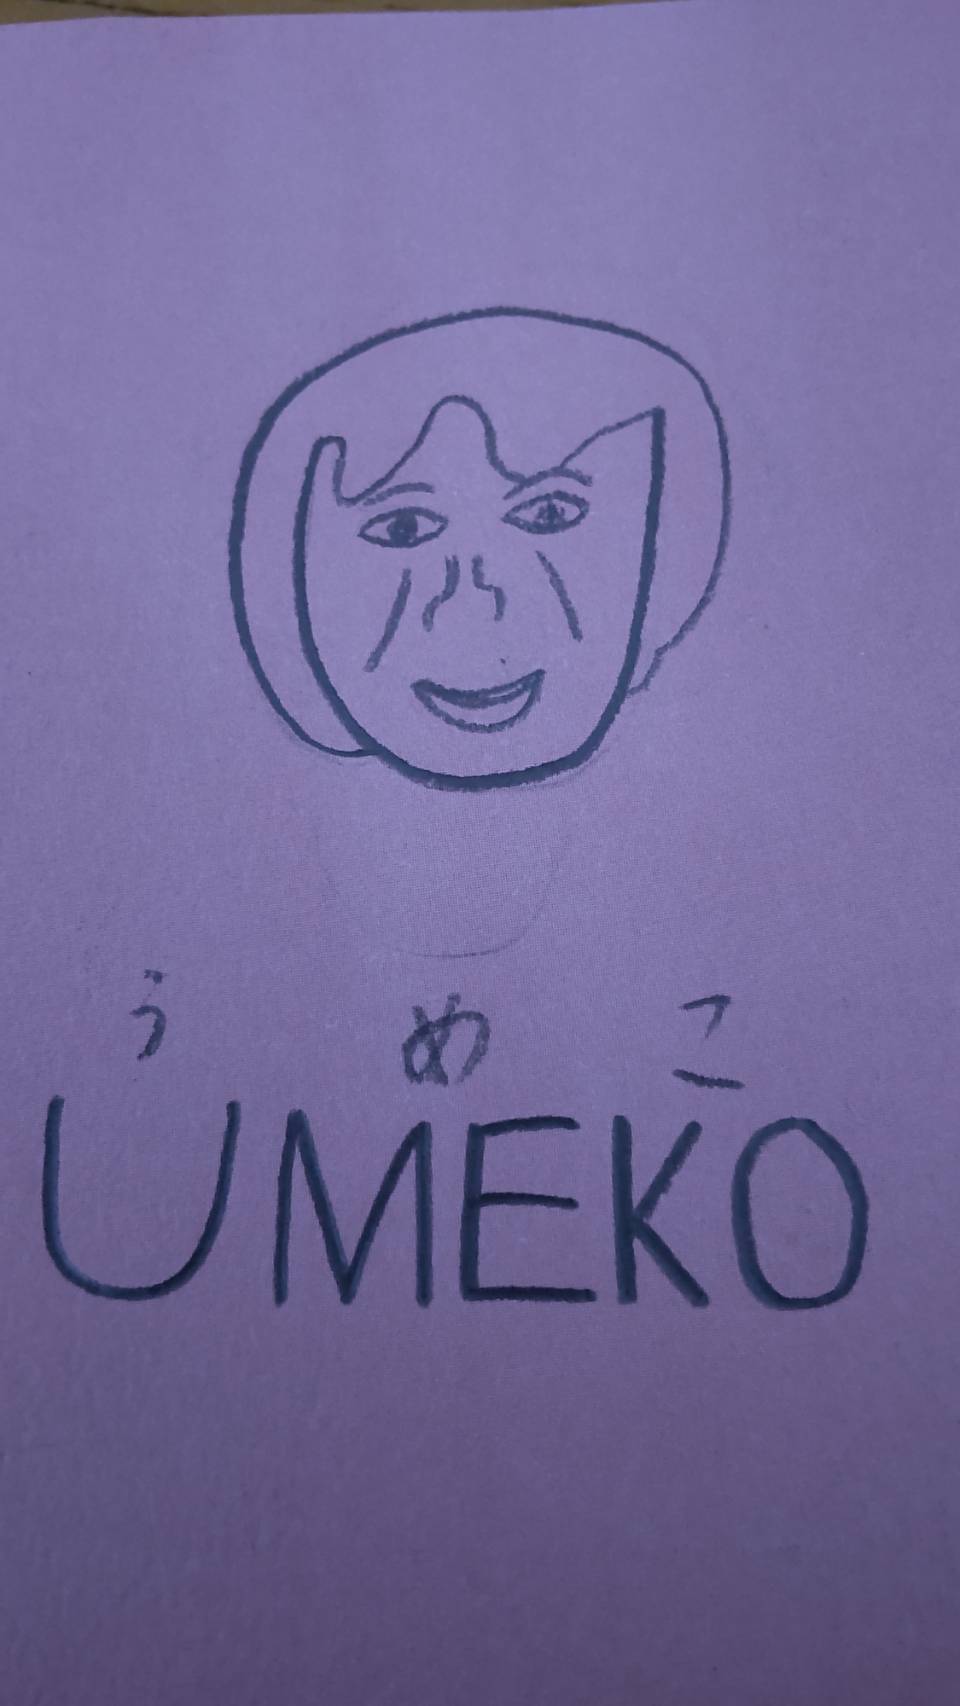 うめこ
UMEKO